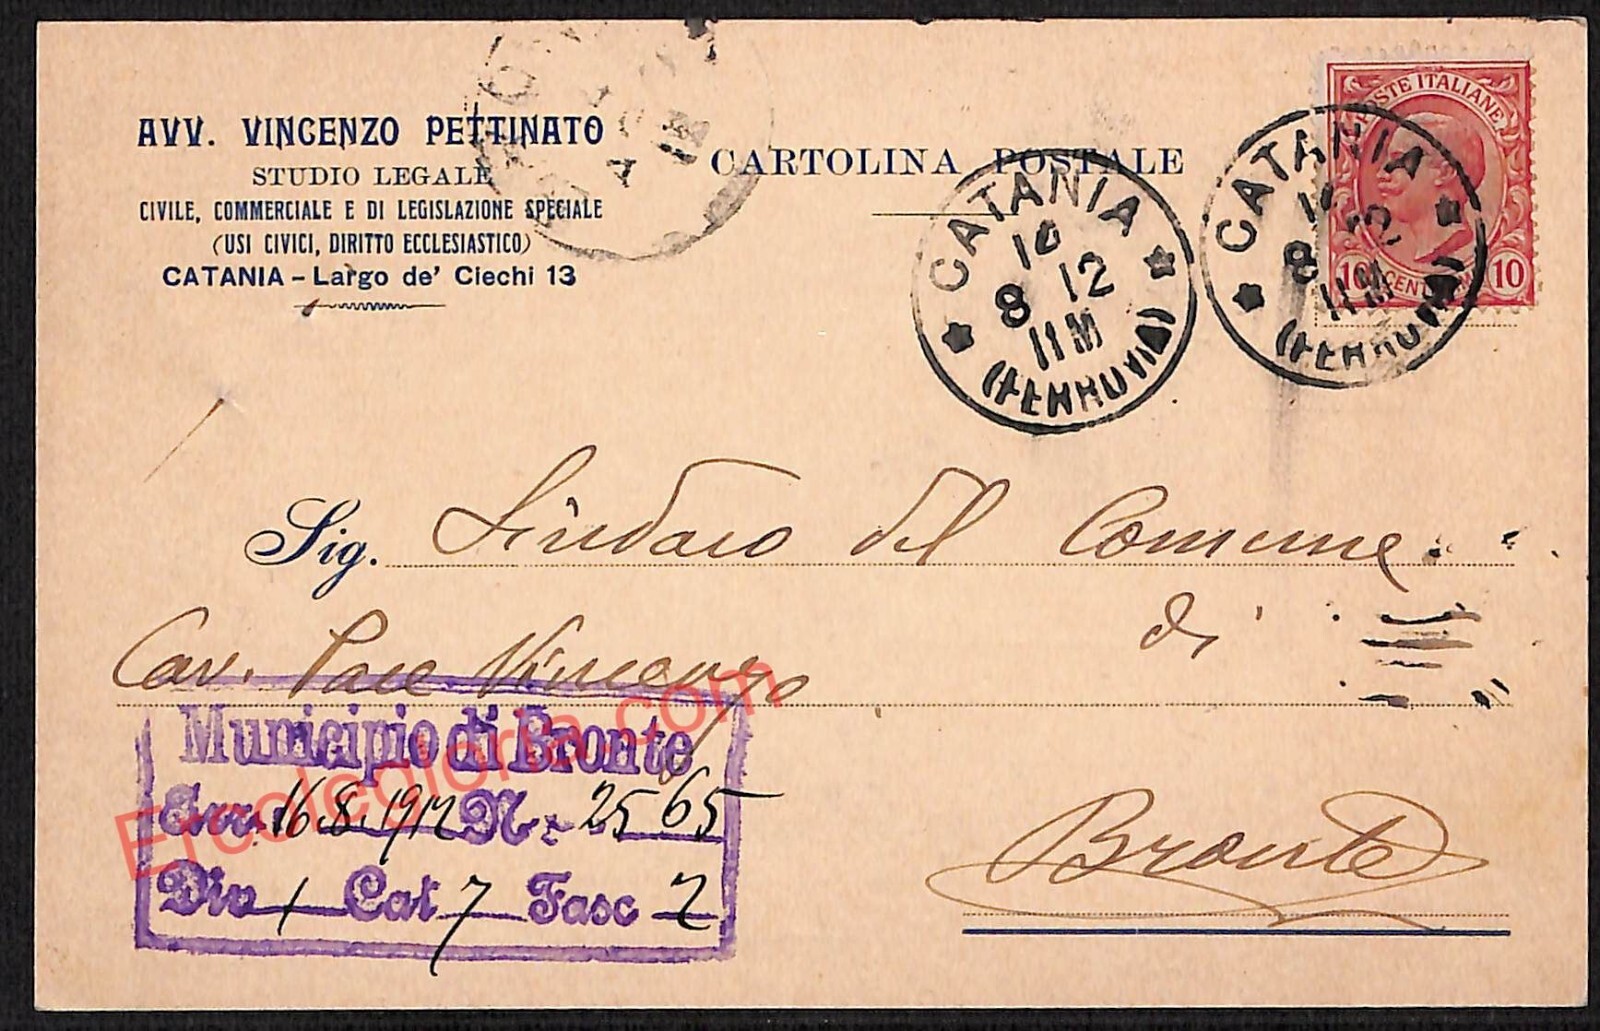 AVV. VINCENZO PETTINATO
STUDIO LEGALE
CIVILE, COMMERCIALE E DI LEGISLAZIONE SPECIALE
(USI CIVICI, DIRITTO ECCLESIASTICO)
CATANIA - Largo de' Ciechi 13
CARTOLINA POSTALE
CATANIA
8 12
11M
(FERROVIA)
POSTE ITALIANE
10 CENT 10
CATANIA
8 12
11M
(FERROVIA)
Sig. Sindaco del Comune
di
Cav. Pace Vincenzo
Municipio di Bronte
16.8.1912 N. 2565
Div 1 Cat 7 Fasc 2
Bronte
Ercolegloria.com